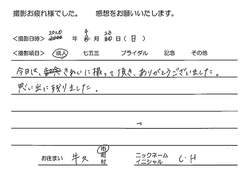 撮影お疲れ様でした。　感想をお願いいたします。
<撮影日時> 2020 年 8月 10日（日）
<撮影項目> 成人　七五三　ブライダル　記念　その他
今日は、きれいに撮って頂き、ありがとうございました。
思い出に残りました。
お住まい　牛久　市 町 村　ニックネーム イニシャル　C.H